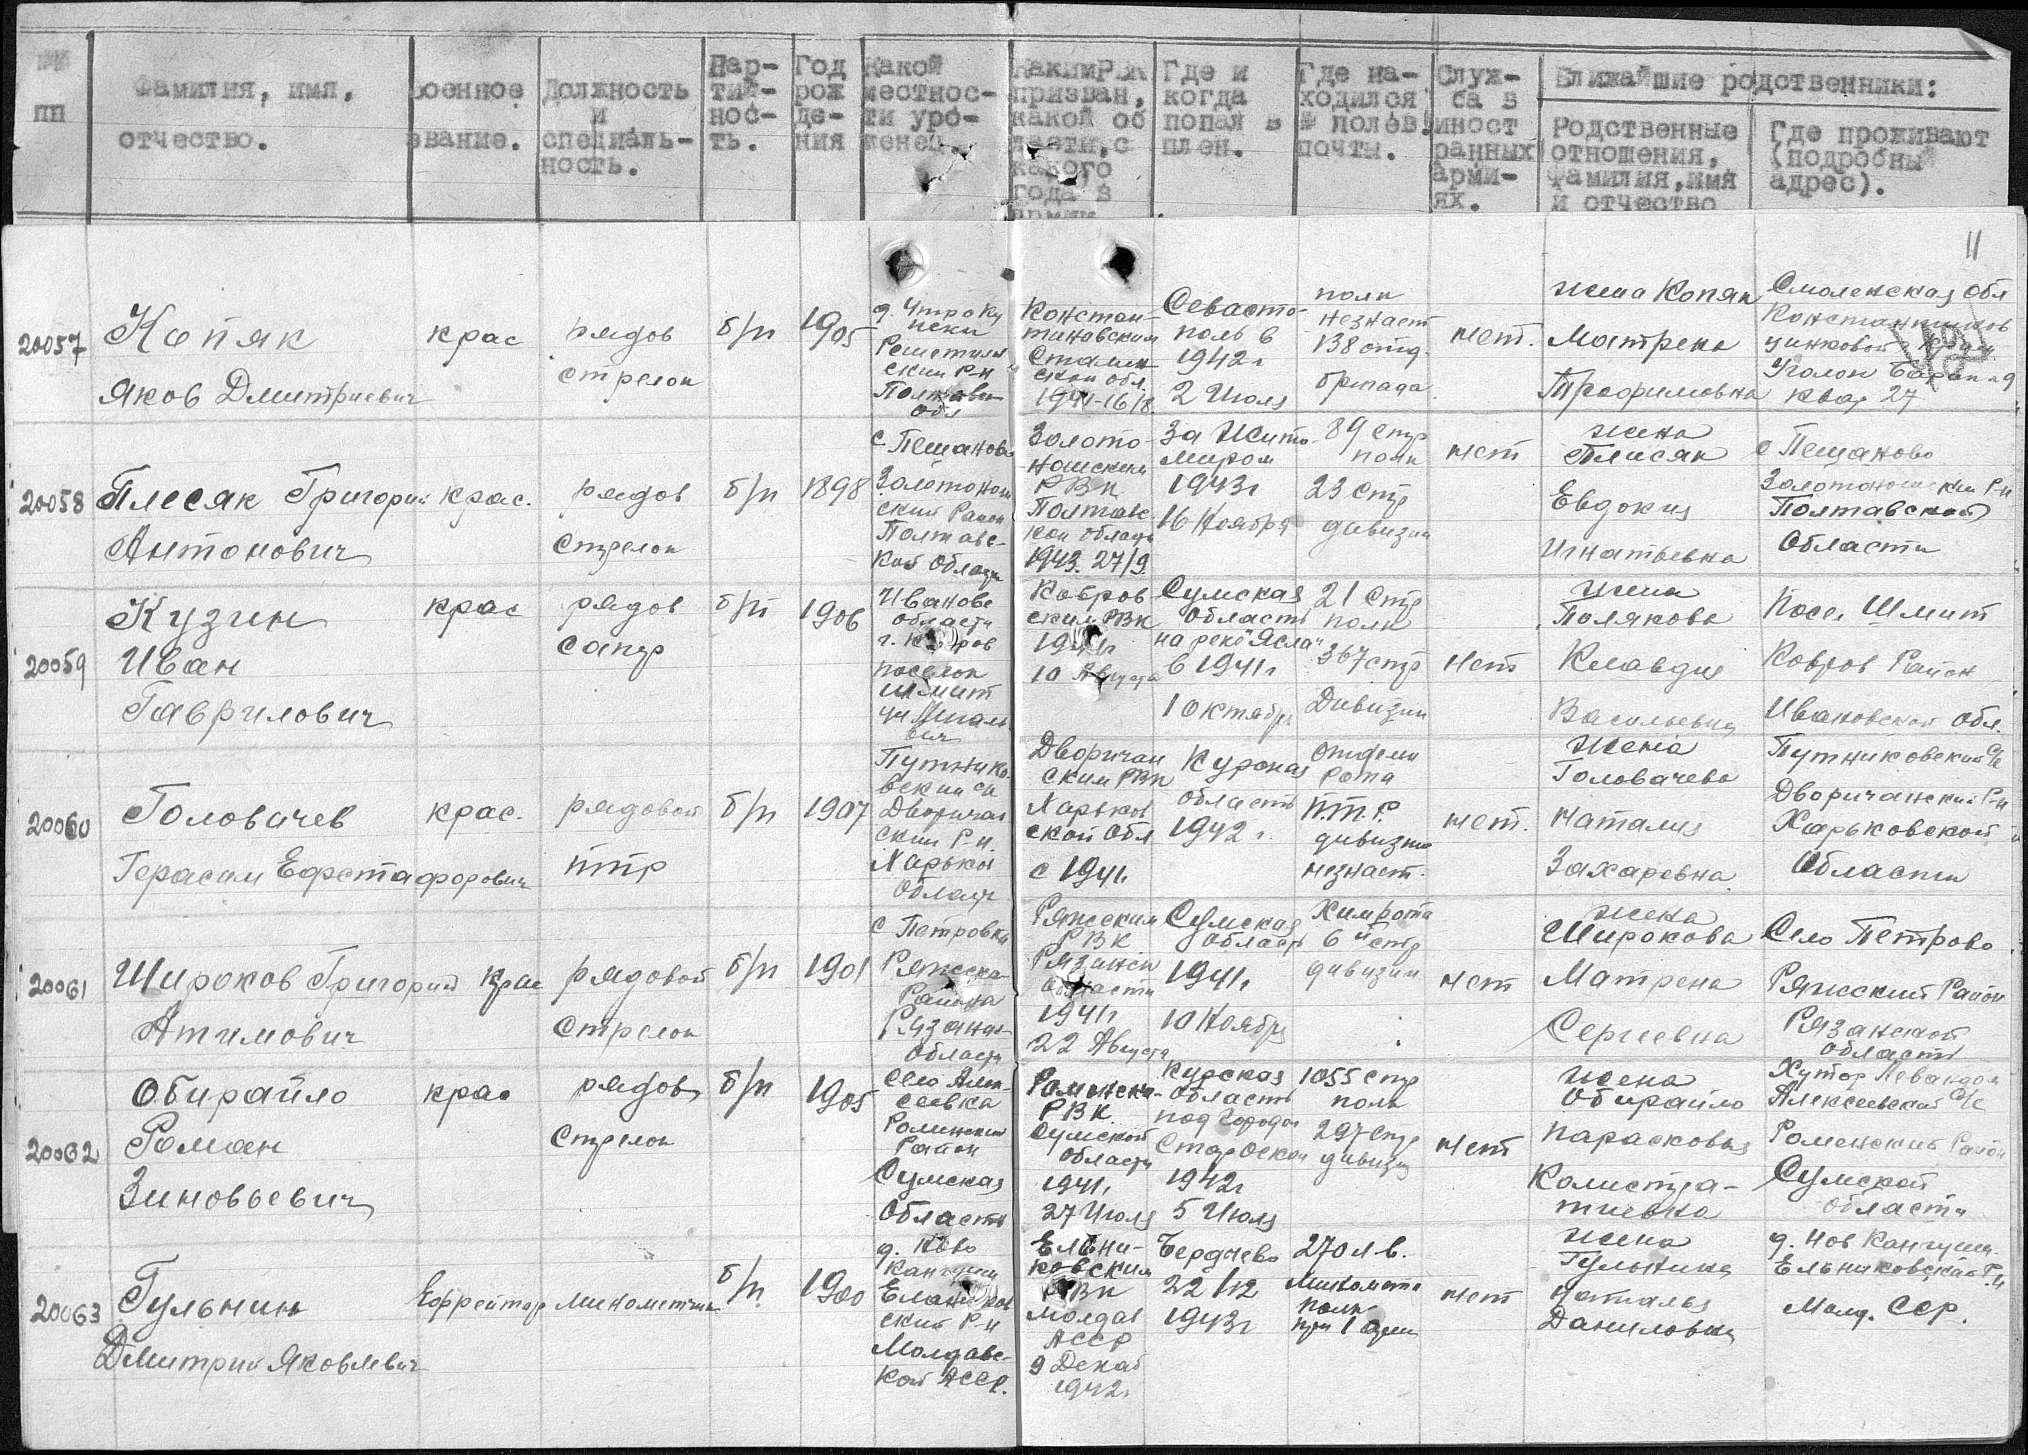 №№ пп
Фамилия, имя, отчество.
Военное звание.
Должность и специальность.
Пар-
тий-
нос-
ть.
Год
рож
де-
ния
Какой
местнос-
ти уро-
женец.
Каким РВК
призван,
какой об
ласти, с
какого
года в
армии
Где и
когда
попал в
плен.
Где на-
ходился
№ полев.
почты.
Служ-
ба в
иност
ранных
арми-
ях.
Ближайшие родственники:
Родственные
отношения,
фамилия, имя
и отчество
Где проживают
(подробный
адрес).
11
20057
Копяк
Яков Дмитриевич
крас
рядов
стрелок
б/п
1905
Решетилов
ский Р-н
Полтавск
обл
Констан-
тиновским
обл.
1941-16/8.
Севасто-
поль в
1942г
2 Июля
полк
незнает
138 отд.
бригада
нет.
жена Копяк
Матрена
Трофимовна
Смоленская обл
квар 27
20058
Плесяк Григорий
Антонович
крас.
рядов
стрелок
б/п
1898
с Пешаново
Золотонош
ский Район
Полтавс-
кой области
Золото-
ношским
РВК
Полтавс
кой области
1943. 27/9.
За Жито-
миром
1943г
16 Ноября
89 стр
полк
23 стр
дивизии
нет
жена
Плисяк
Евдокия
Игнатьевна
с Пешаново
Золотоношский Р-н
Полтавской
Области
20059
Кузин
Иван
Гаврилович
крас
рядов
сапер
б/п
1906
Иванове
области
г. Ковров
поселок
Шмит
Ковров
ским РВК
1941г
10 Августа
Сумская
область
на реке "Ясла"
в 1941г
1 Октября
21 стр
полк
367 стр
Дивизии
нет
жена
Полякова
Клавдия
Васильевна
Посел Шмит
Ковров Район
Ивановской обл.
20060
Головачев
Герасим Ефстафорович
крас.
рядовой
птр
б/п
1907
Путнико-
вский с/с
Дворичан
ский Р-н.
Харьков
Области
Дворичан
ским РВК
Харьков
ской обл
с 1941г
Курская
область
1942 г.
отдельн
рота
П.Т.Р.
дивизию
незнает.
нет.
жена
Головачева
Наталия
Захаревна
Путниковский с/с
Дворичанский Р-н
Харьковской
Области
20061
Широков Григорий
Атимович
крас
рядовой
стрелок
б/п
1901
с Петровки
Ряжска-
Района
Рязанск-
области
Ряжским
РВК
Рязанск
области
1941г
22 Августа
Сумская
область
1941г
10 Ноября
Химрота
6й стр
дивизии
нет
жена
Широкова
Матрена
Сергеевна
Село Петрово
Ряжский Район
Рязанской
области
20062
Обирайло
Роман
Зиновьевич
крас
рядов
стрелок
б/п
1905
село Алек-
сеевка
Роминский
Район
Сумская
Область
Роменски-
РВК
Сумской
области
1941г
27 Июля
Курская
область
под городом
Стар Оскол
1942г
5 Июля
1055 стр
полк
297 стр
дивизия
нет
жена
Обирайло
Парасковья
Калистра-
тиевна
Алексеевский с/с
Роменский Район
Сумской
области
20063
Гульнин
Дмитрий Яковлевич
Ефрейтор
минометчик
б/п.
1900
д. Ново
Ельников
ский Р-н
Молдавс-
кой АССР.
Ельни-
ковским
РВК
Молдав
АССР
9 Декаб
1942г
Бердчево
22/12
1943г
270 л.в.
Минометн
полк
при 1 арм
нет
жена
Гульнина
Наталья
Даниловна
Ельниковский Р-н
Молд. ССР.